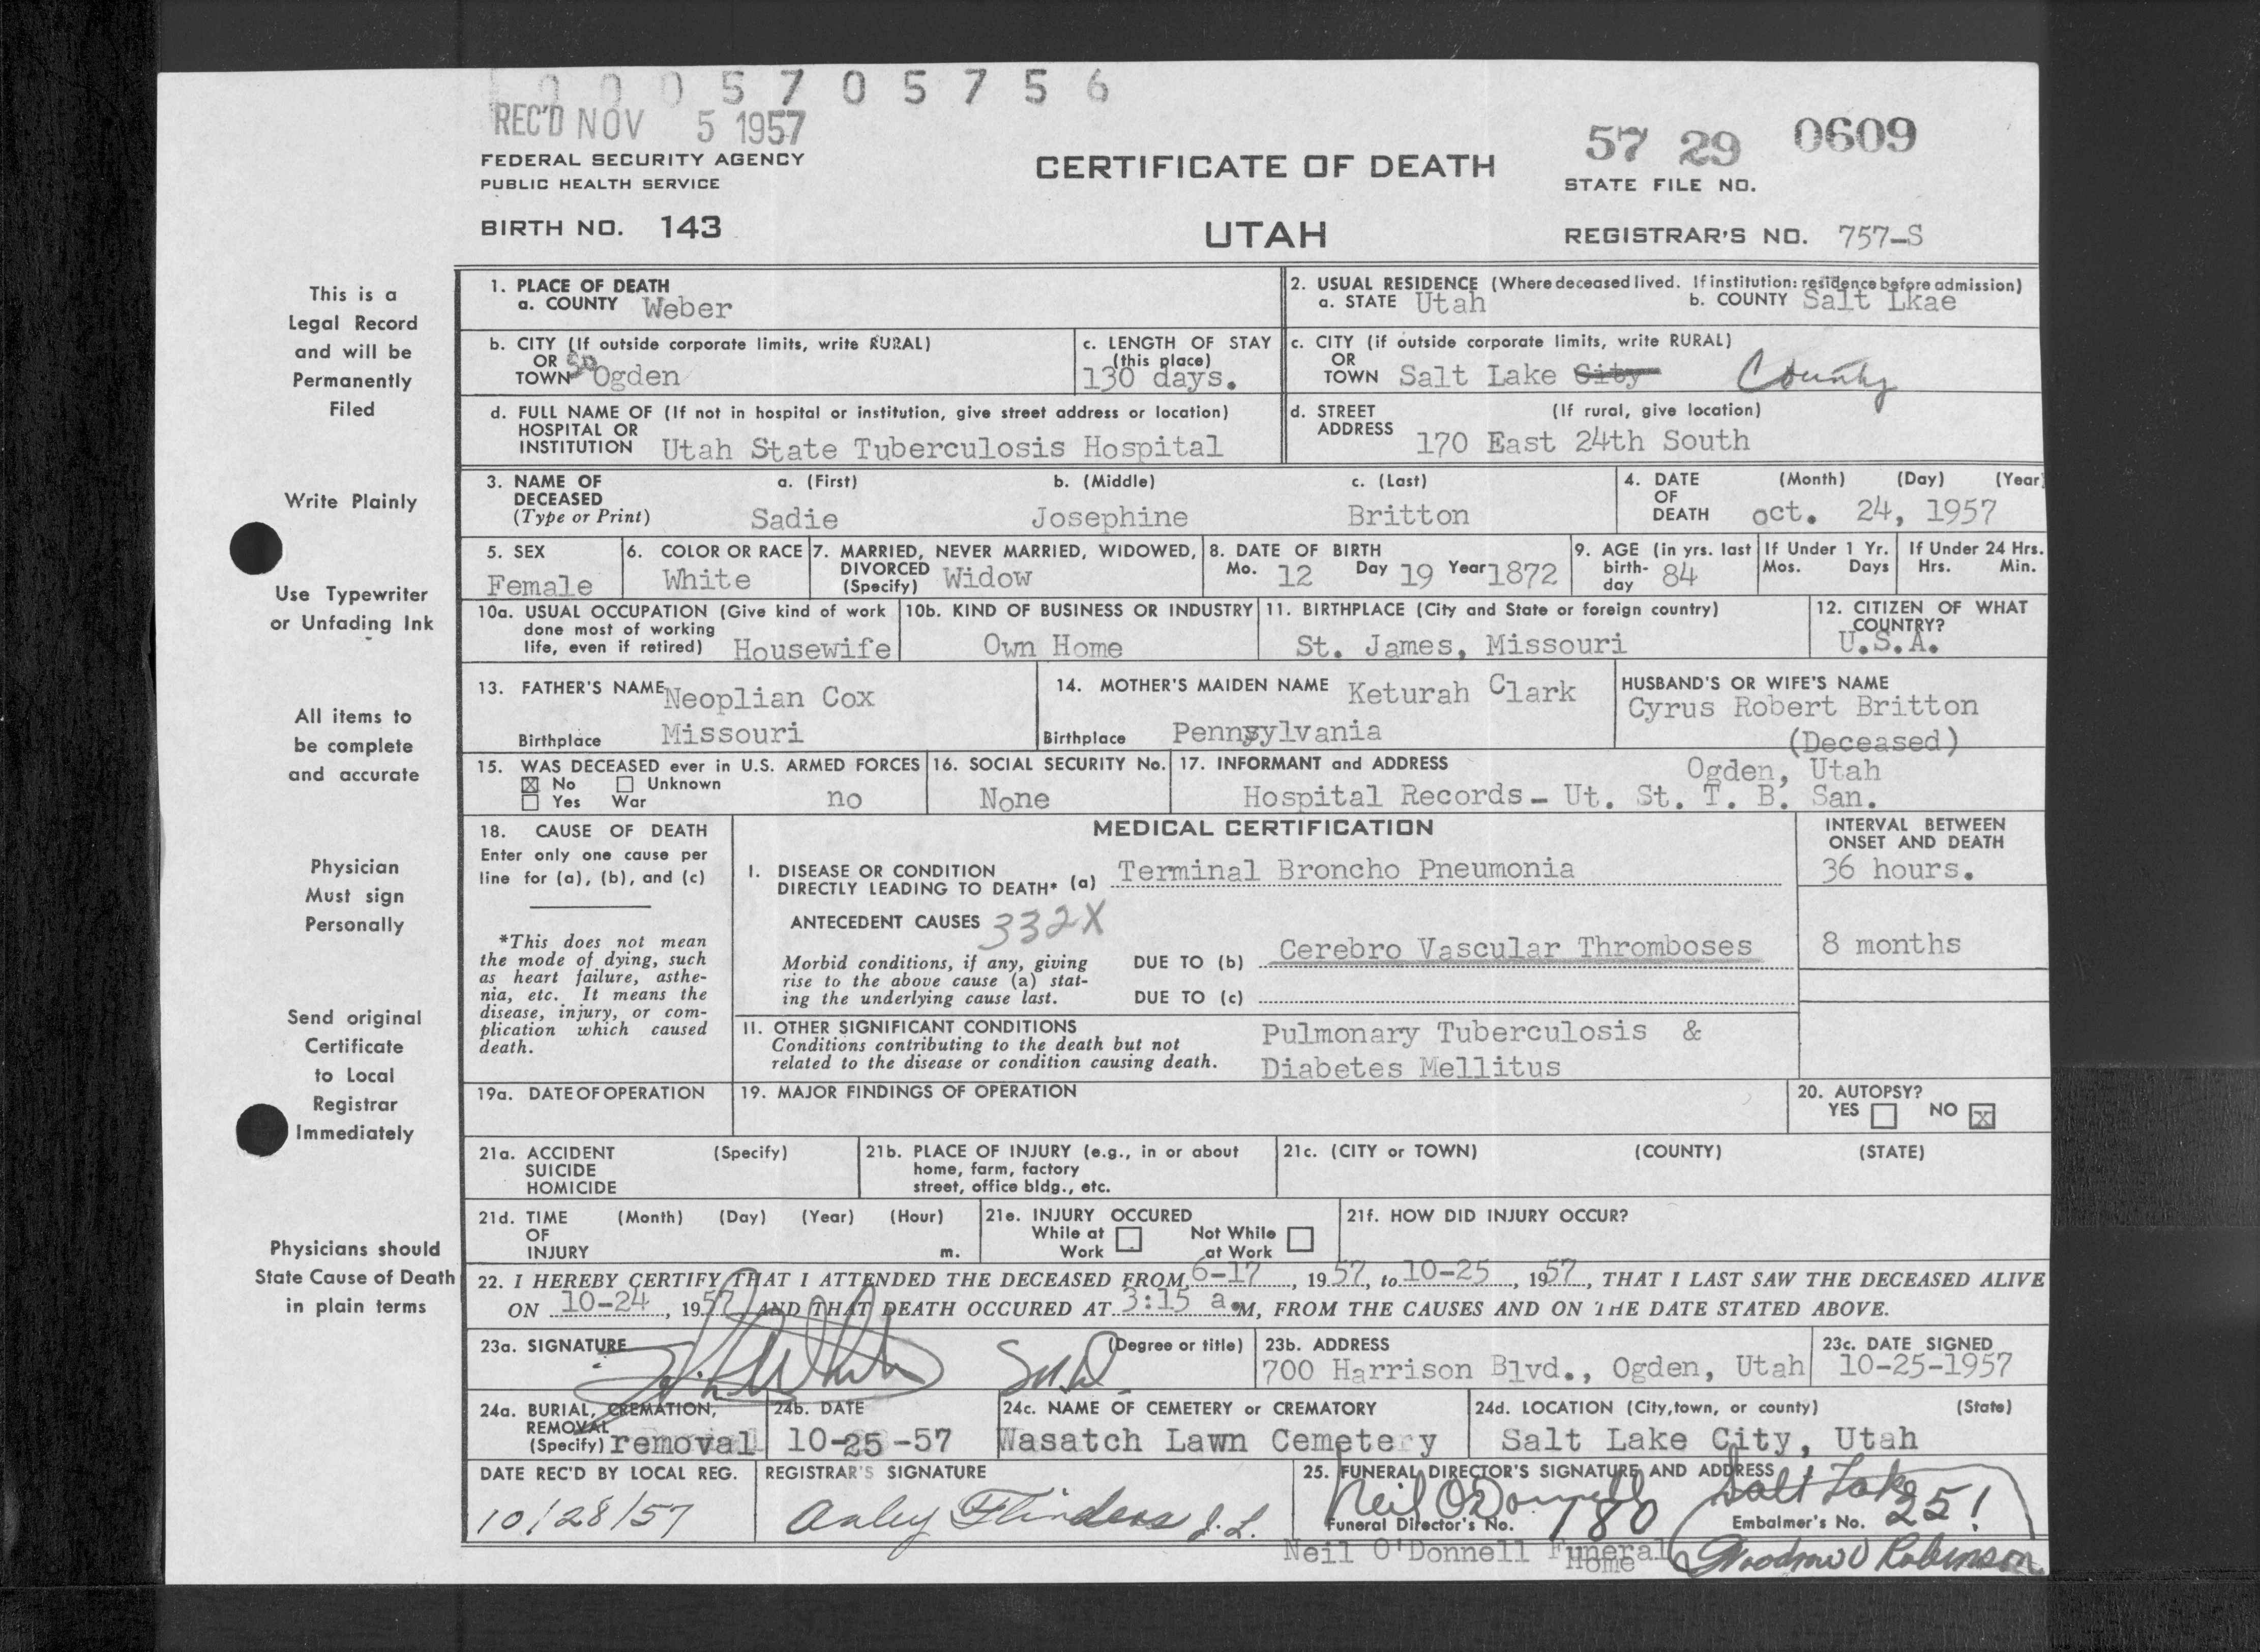 0005705756
REC'D NOV 5 1957
57 29 0609
FEDERAL SECURITY AGENCY
PUBLIC HEALTH SERVICE
CERTIFICATE OF DEATH
STATE FILE NO.
BIRTH NO. 143
UTAH
REGISTRAR'S NO. 757-S
This is a
Legal Record
and will be
Permanently
Filed
Write Plainly
Use Typewriter
or Unfading Ink
All items to
be complete
and accurate
Physician
Must sign
Personally
Send original
Certificate
to Local
Registrar
Immediately
Physicians should
State Cause of Death
in plain terms
1. PLACE OF DEATH
a. COUNTY Weber
2. USUAL RESIDENCE (Where deceased lived. If institution: residence before admission)
a. STATE Utah b. COUNTY Salt Lkae
b. CITY (If outside corporate limits, write RURAL)
OR
TOWN So Ogden
c. LENGTH OF STAY
(this place)
130 days.
c. CITY (if outside corporate limits, write RURAL)
OR
TOWN Salt Lake City County
d. FULL NAME OF (If not in hospital or institution, give street address or location)
HOSPITAL OR
INSTITUTION Utah State Tuberculosis Hospital
d. STREET (If rural, give location)
ADDRESS 170 East 24th South
3. NAME OF a. (First) b. (Middle) c. (Last)
DECEASED
(Type or Print) Sadie Josephine Britton
4. DATE (Month) (Day) (Year)
OF
DEATH oct. 24, 1957
5. SEX
Female
6. COLOR OR RACE
White
7. MARRIED, NEVER MARRIED, WIDOWED,
DIVORCED
(Specify) Widow
8. DATE OF BIRTH
Mo. 12 Day 19 Year 1872
9. AGE (in yrs. last
birth-
day 84
If Under 1 Yr.
Mos. Days
If Under 24 Hrs.
Hrs. Min.
10a. USUAL OCCUPATION (Give kind of work
done most of working
life, even if retired) Housewife
10b. KIND OF BUSINESS OR INDUSTRY
Own Home
11. BIRTHPLACE (City and State or foreign country)
St. James, Missouri
12. CITIZEN OF WHAT
COUNTRY?
U.S.A.
13. FATHER'S NAME Neoplian Cox
Birthplace Missouri
14. MOTHER'S MAIDEN NAME Keturah Clark
Birthplace Pennsylvania
HUSBAND'S OR WIFE'S NAME
Cyrus Robert Britton
(Deceased)
15. WAS DECEASED ever in U.S. ARMED FORCES
No Unknown
Yes War no
16. SOCIAL SECURITY No.
None
17. INFORMANT and ADDRESS Ogden, Utah
Hospital Records - Ut. St. T. B. San.
18. CAUSE OF DEATH
Enter only one cause per
line for (a), (b), and (c)
*This does not mean
the mode of dying, such
as heart failure, asthe-
nia, etc. It means the
disease, injury, or com-
plication which caused
death.
MEDICAL CERTIFICATION
INTERVAL BETWEEN
ONSET AND DEATH
I. DISEASE OR CONDITION
DIRECTLY LEADING TO DEATH* (a) Terminal Broncho Pneumonia
36 hours.
ANTECEDENT CAUSES 332X
Morbid conditions, if any, giving
rise to the above cause (a) stat-
ing the underlying cause last.
DUE TO (b) Cerebro Vascular Thromboses
8 months
DUE TO (c)
II. OTHER SIGNIFICANT CONDITIONS
Conditions contributing to the death but not
related to the disease or condition causing death.
Pulmonary Tuberculosis &
Diabetes Mellitus
19a. DATE OF OPERATION
19. MAJOR FINDINGS OF OPERATION
20. AUTOPSY?
YES NO X
21a. ACCIDENT (Specify)
SUICIDE
HOMICIDE
21b. PLACE OF INJURY (e.g., in or about
home, farm, factory
street, office bldg., etc.
21c. (CITY or TOWN) (COUNTY) (STATE)
21d. TIME (Month) (Day) (Year) (Hour)
OF
INJURY m.
21e. INJURY OCCURED
While at Not While
Work at Work
21f. HOW DID INJURY OCCUR?
22. I HEREBY CERTIFY THAT I ATTENDED THE DECEASED FROM 6-17, 1957, to 10-25, 1957, THAT I LAST SAW THE DECEASED ALIVE
ON 10-24, 1957 AND THAT DEATH OCCURED AT 3:15 a.M, FROM THE CAUSES AND ON THE DATE STATED ABOVE.
23a. SIGNATURE (Degree or title)
23b. ADDRESS
700 Harrison Blvd., Ogden, Utah
23c. DATE SIGNED
10-25-1957
24a. BURIAL, CREMATION,
REMOVAL
(Specify) removal
24b. DATE
10-25-57
24c. NAME OF CEMETERY or CREMATORY
Wasatch Lawn Cemetery
24d. LOCATION (City, town, or county) (State)
Salt Lake City, Utah
DATE REC'D BY LOCAL REG.
10/28/57
REGISTRAR'S SIGNATURE
Flinders J.L.
25. FUNERAL DIRECTOR'S SIGNATURE AND ADDRESS
Neil O'Donnell Salt Lake
Funeral Director's No. 180 Embalmer's No. 251
Neil O'Donnell Funeral
Home
Woodrow Robinson